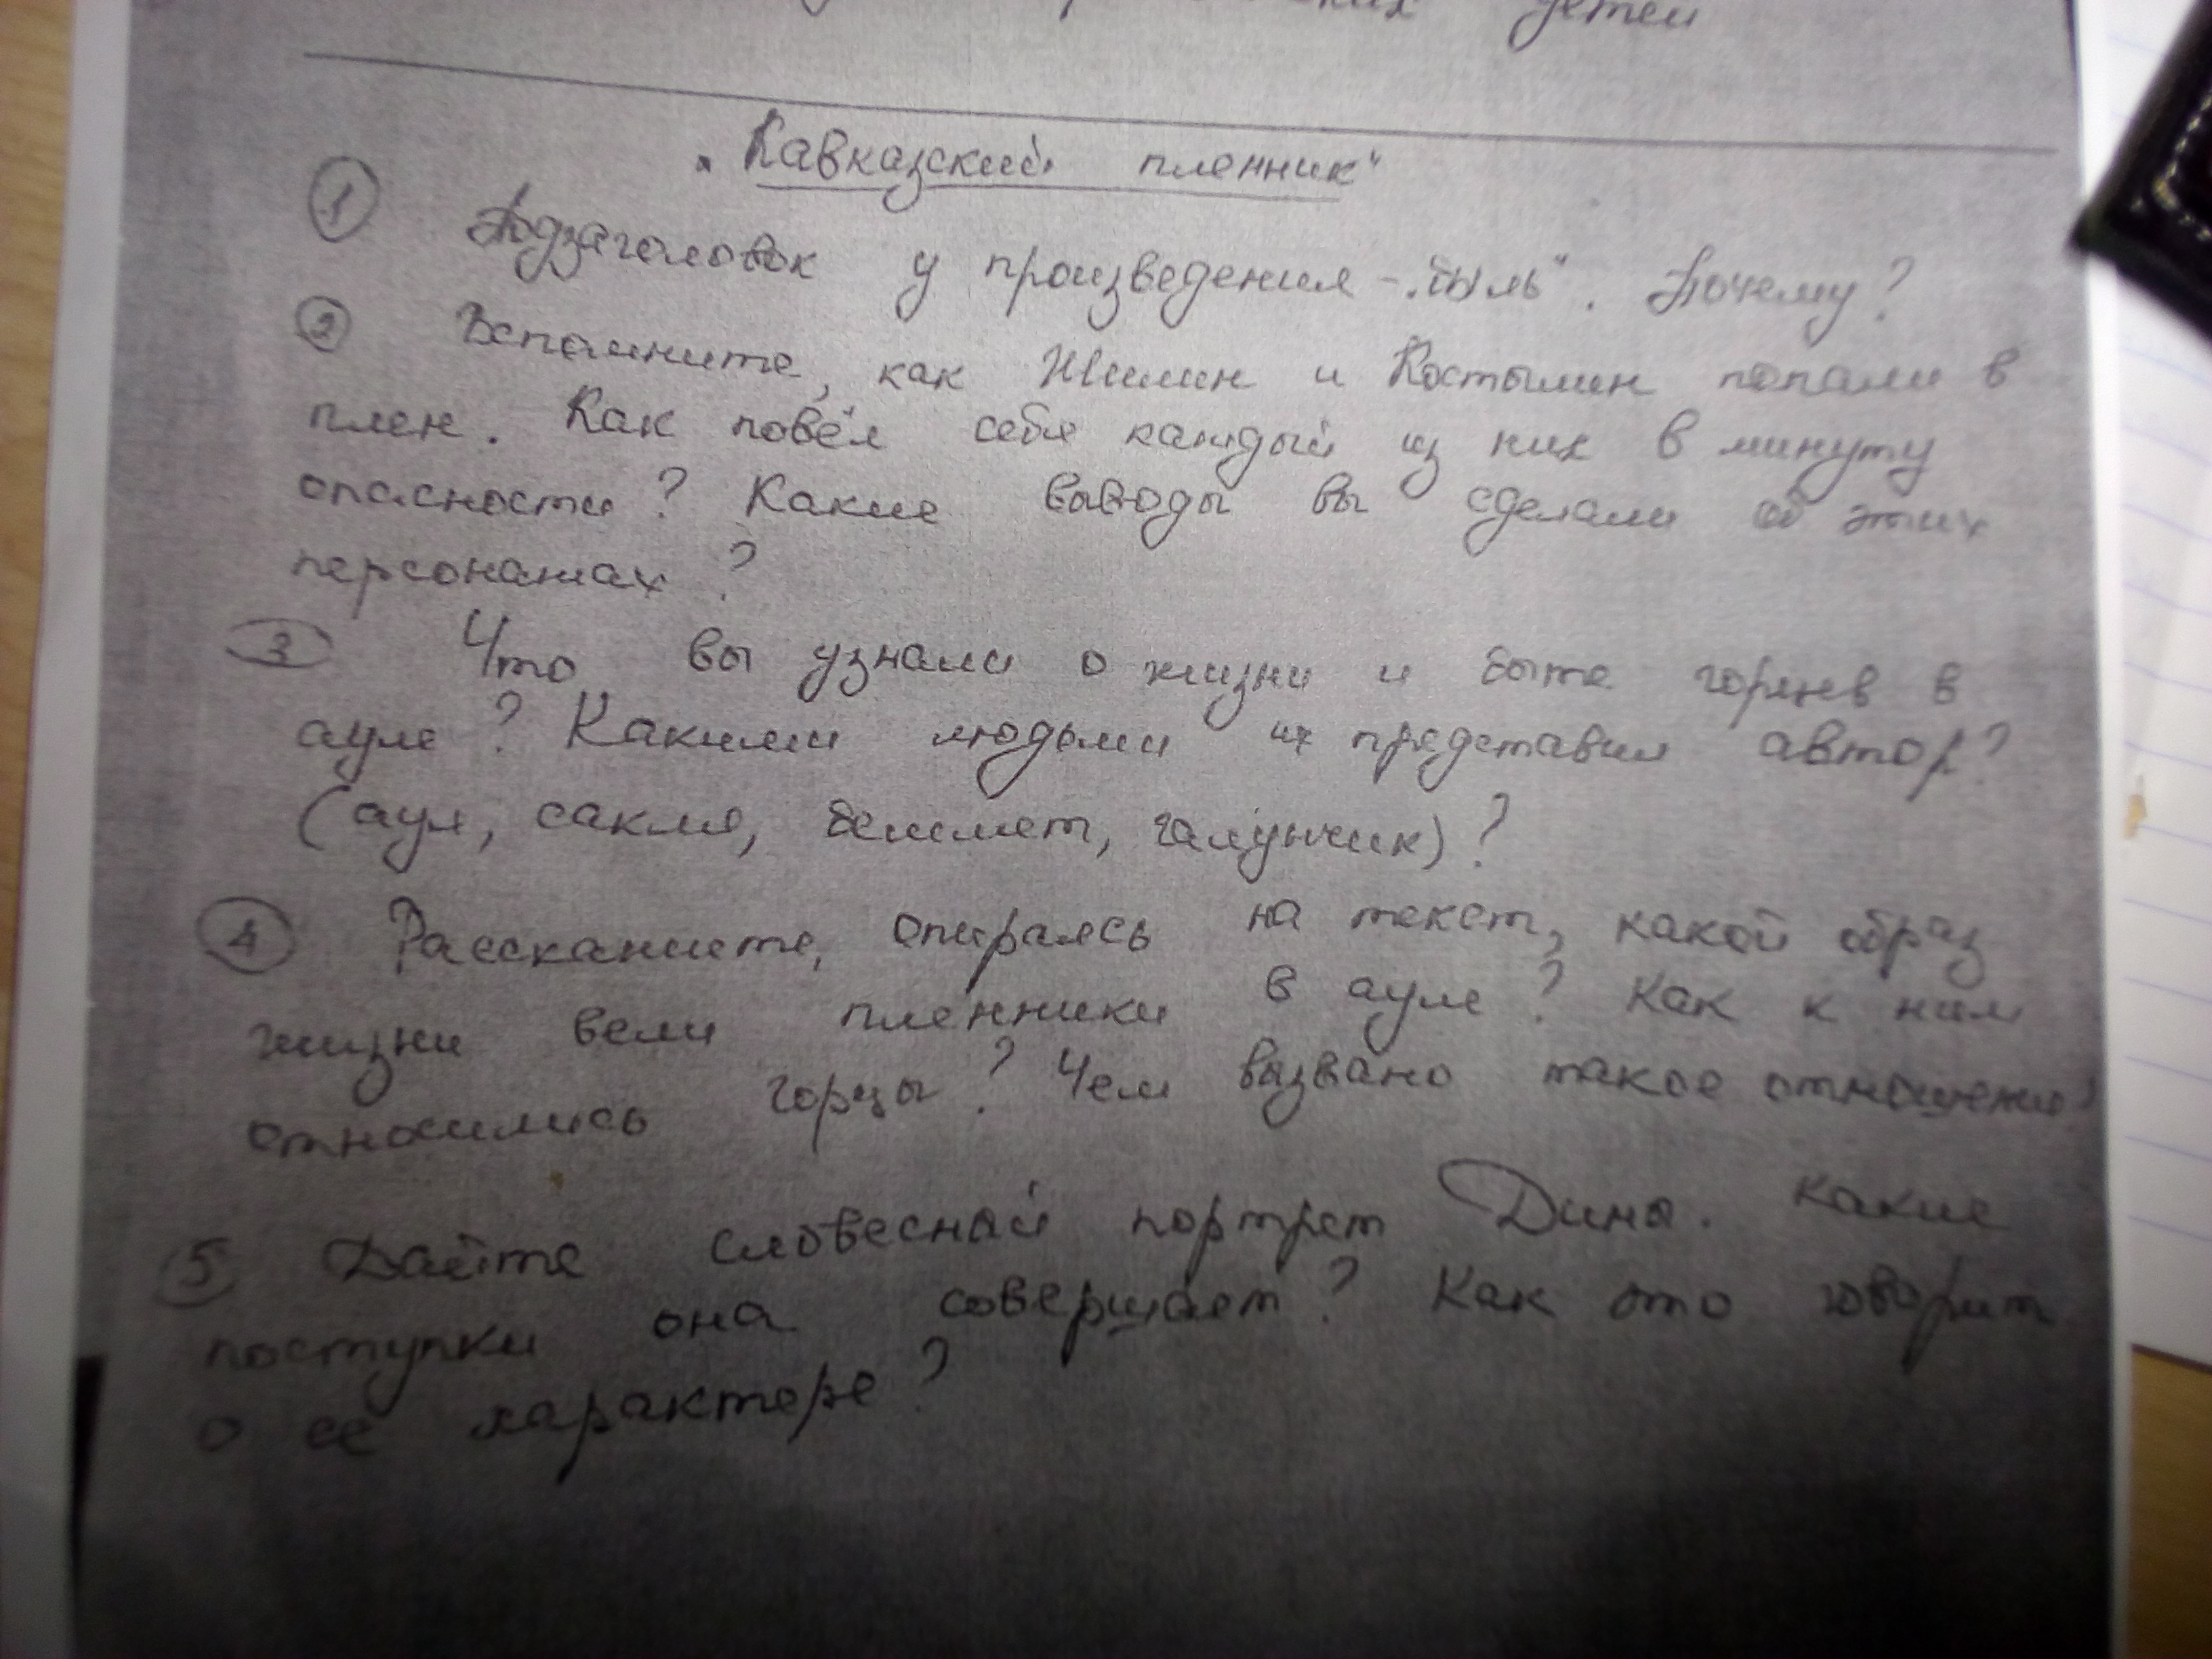 детей
„Кавказский пленник"
1 Подзаголовок у произведения - „быль". Почему?
2 Вспомните, как Жилин и Костылин попали в
плен. Как повёл себя каждый из них в минуту
опасности? Какие выводы вы сделали об этих
персонажах?
3 Что вы узнали о жизни и быте горцев в
ауле? Какими людьми их представил автор?
(аул, сакля, бешмет, галунчик)?
4 Расскажите, опираясь на текст, какой образ
жизни вели пленники в ауле? Как к ним
относились горцы? Чем вызвано такое отношение?
5 Дайте словесный портрет Дины. Какие
поступки она совершает? Как это говорит
о её характере?